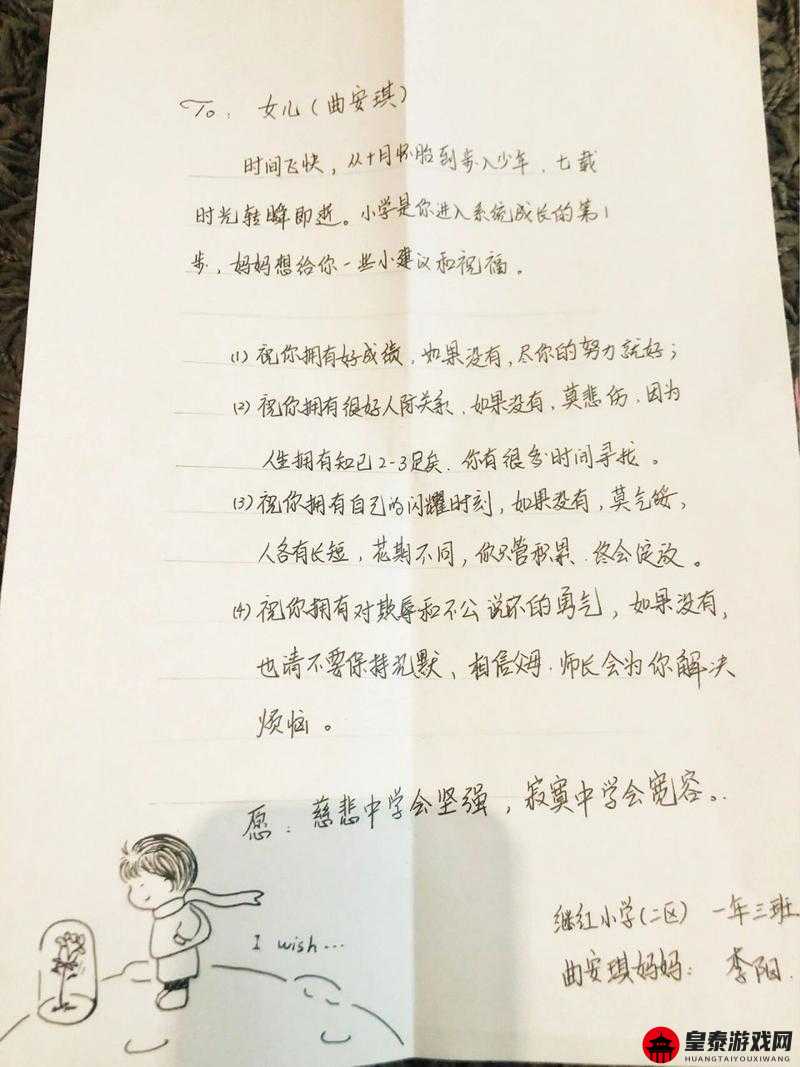 To: 女儿(曲安琪)
时间飞快,从十月怀胎到步入少年,七载
时光转瞬即逝。小学是你进入系统成长的第1
步,妈妈想给你一些小建议和祝福。
(1) 祝你拥有好成绩,如果没有,尽你的努力就好;
(2) 祝你拥有很好人际关系,如果没有,莫悲伤,因为
人生拥有知己2-3足矣,你有很多时间寻找。
(3) 祝你拥有自己的闪耀时刻,如果没有,莫气馁,
人各有长短,花期不同,你只管积累,终会绽放。
(4) 祝你拥有对欺辱和不公说不的勇气,如果没有,
也请不要保持沉默,相信父母、师长会为你解决
烦恼。
愿:慈悲中学会坚强,寂寞中学会宽容。
I wish...
继红小学(二区) 一年三班
曲安琪妈妈:李阳
皇泰游戏网
HUANGTAIYOUXIWANG